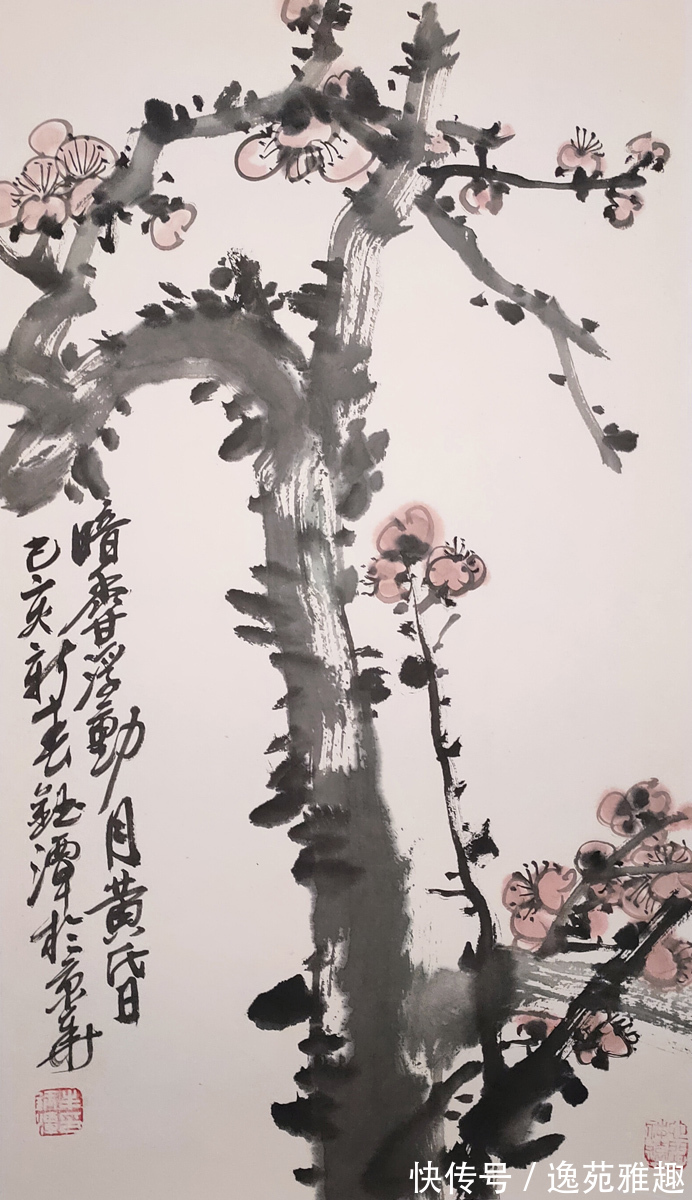 暗香浮動月黄昏
己亥新春鈺潭於京華
快传号 / 逸苑雅趣